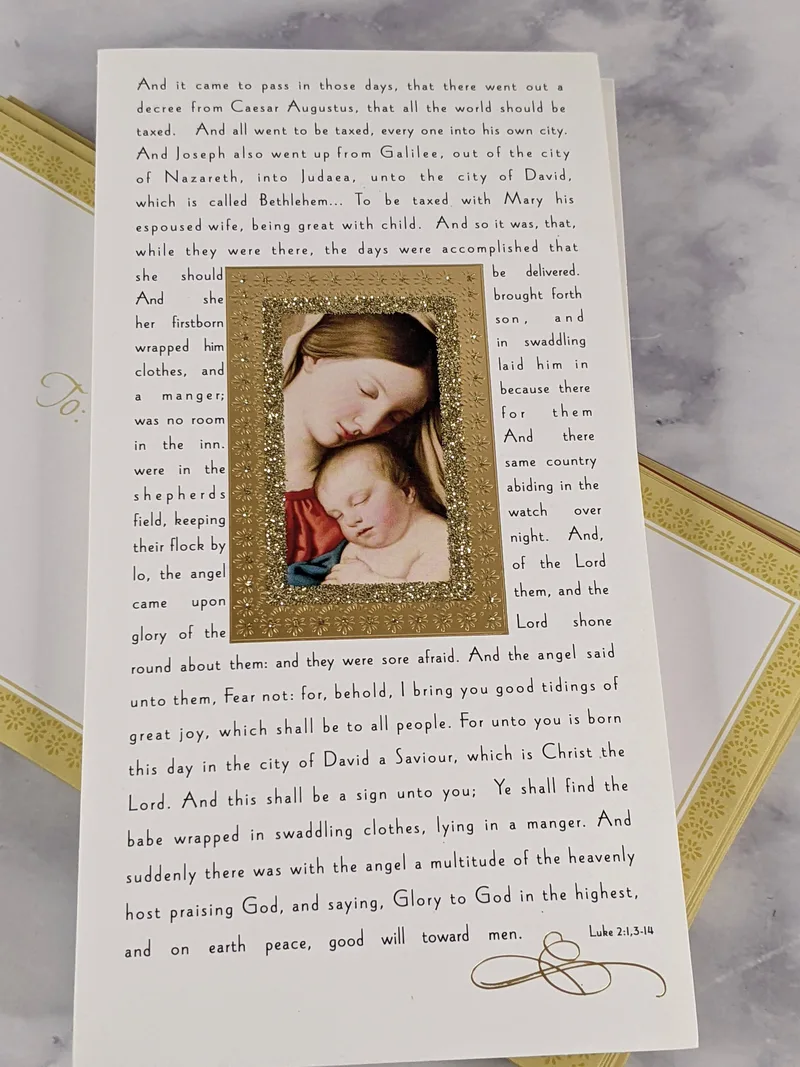 And it came to pass in those days, that there went out a
decree from Caesar Augustus, that all the world should be
taxed. And all went to be taxed, every one into his own city.
And Joseph also went up from Galilee, out of the city
of Nazareth, into Judaea, unto the city of David,
which is called Bethlehem... To be taxed with Mary his
espoused wife, being great with child. And so it was, that,
while they were there, the days were accomplished that
she should be delivered.
And she brought forth
her firstborn son, and
wrapped him in swaddling
clothes, and laid him in
a manger; because there
was no room for them
in the inn. And there
were in the same country
shepherds abiding in the
field, keeping watch over
their flock by night. And,
lo, the angel of the Lord
came upon them, and the
glory of the Lord shone
round about them: and they were sore afraid. And the angel said
unto them, Fear not: for, behold, I bring you good tidings of
great joy, which shall be to all people. For unto you is born
this day in the city of David a Saviour, which is Christ the
Lord. And this shall be a sign unto you; Ye shall find the
babe wrapped in swaddling clothes, lying in a manger. And
suddenly there was with the angel a multitude of the heavenly
host praising God, and saying, Glory to God in the highest,
and on earth peace, good will toward men.
Luke 2:1,3-14
To: